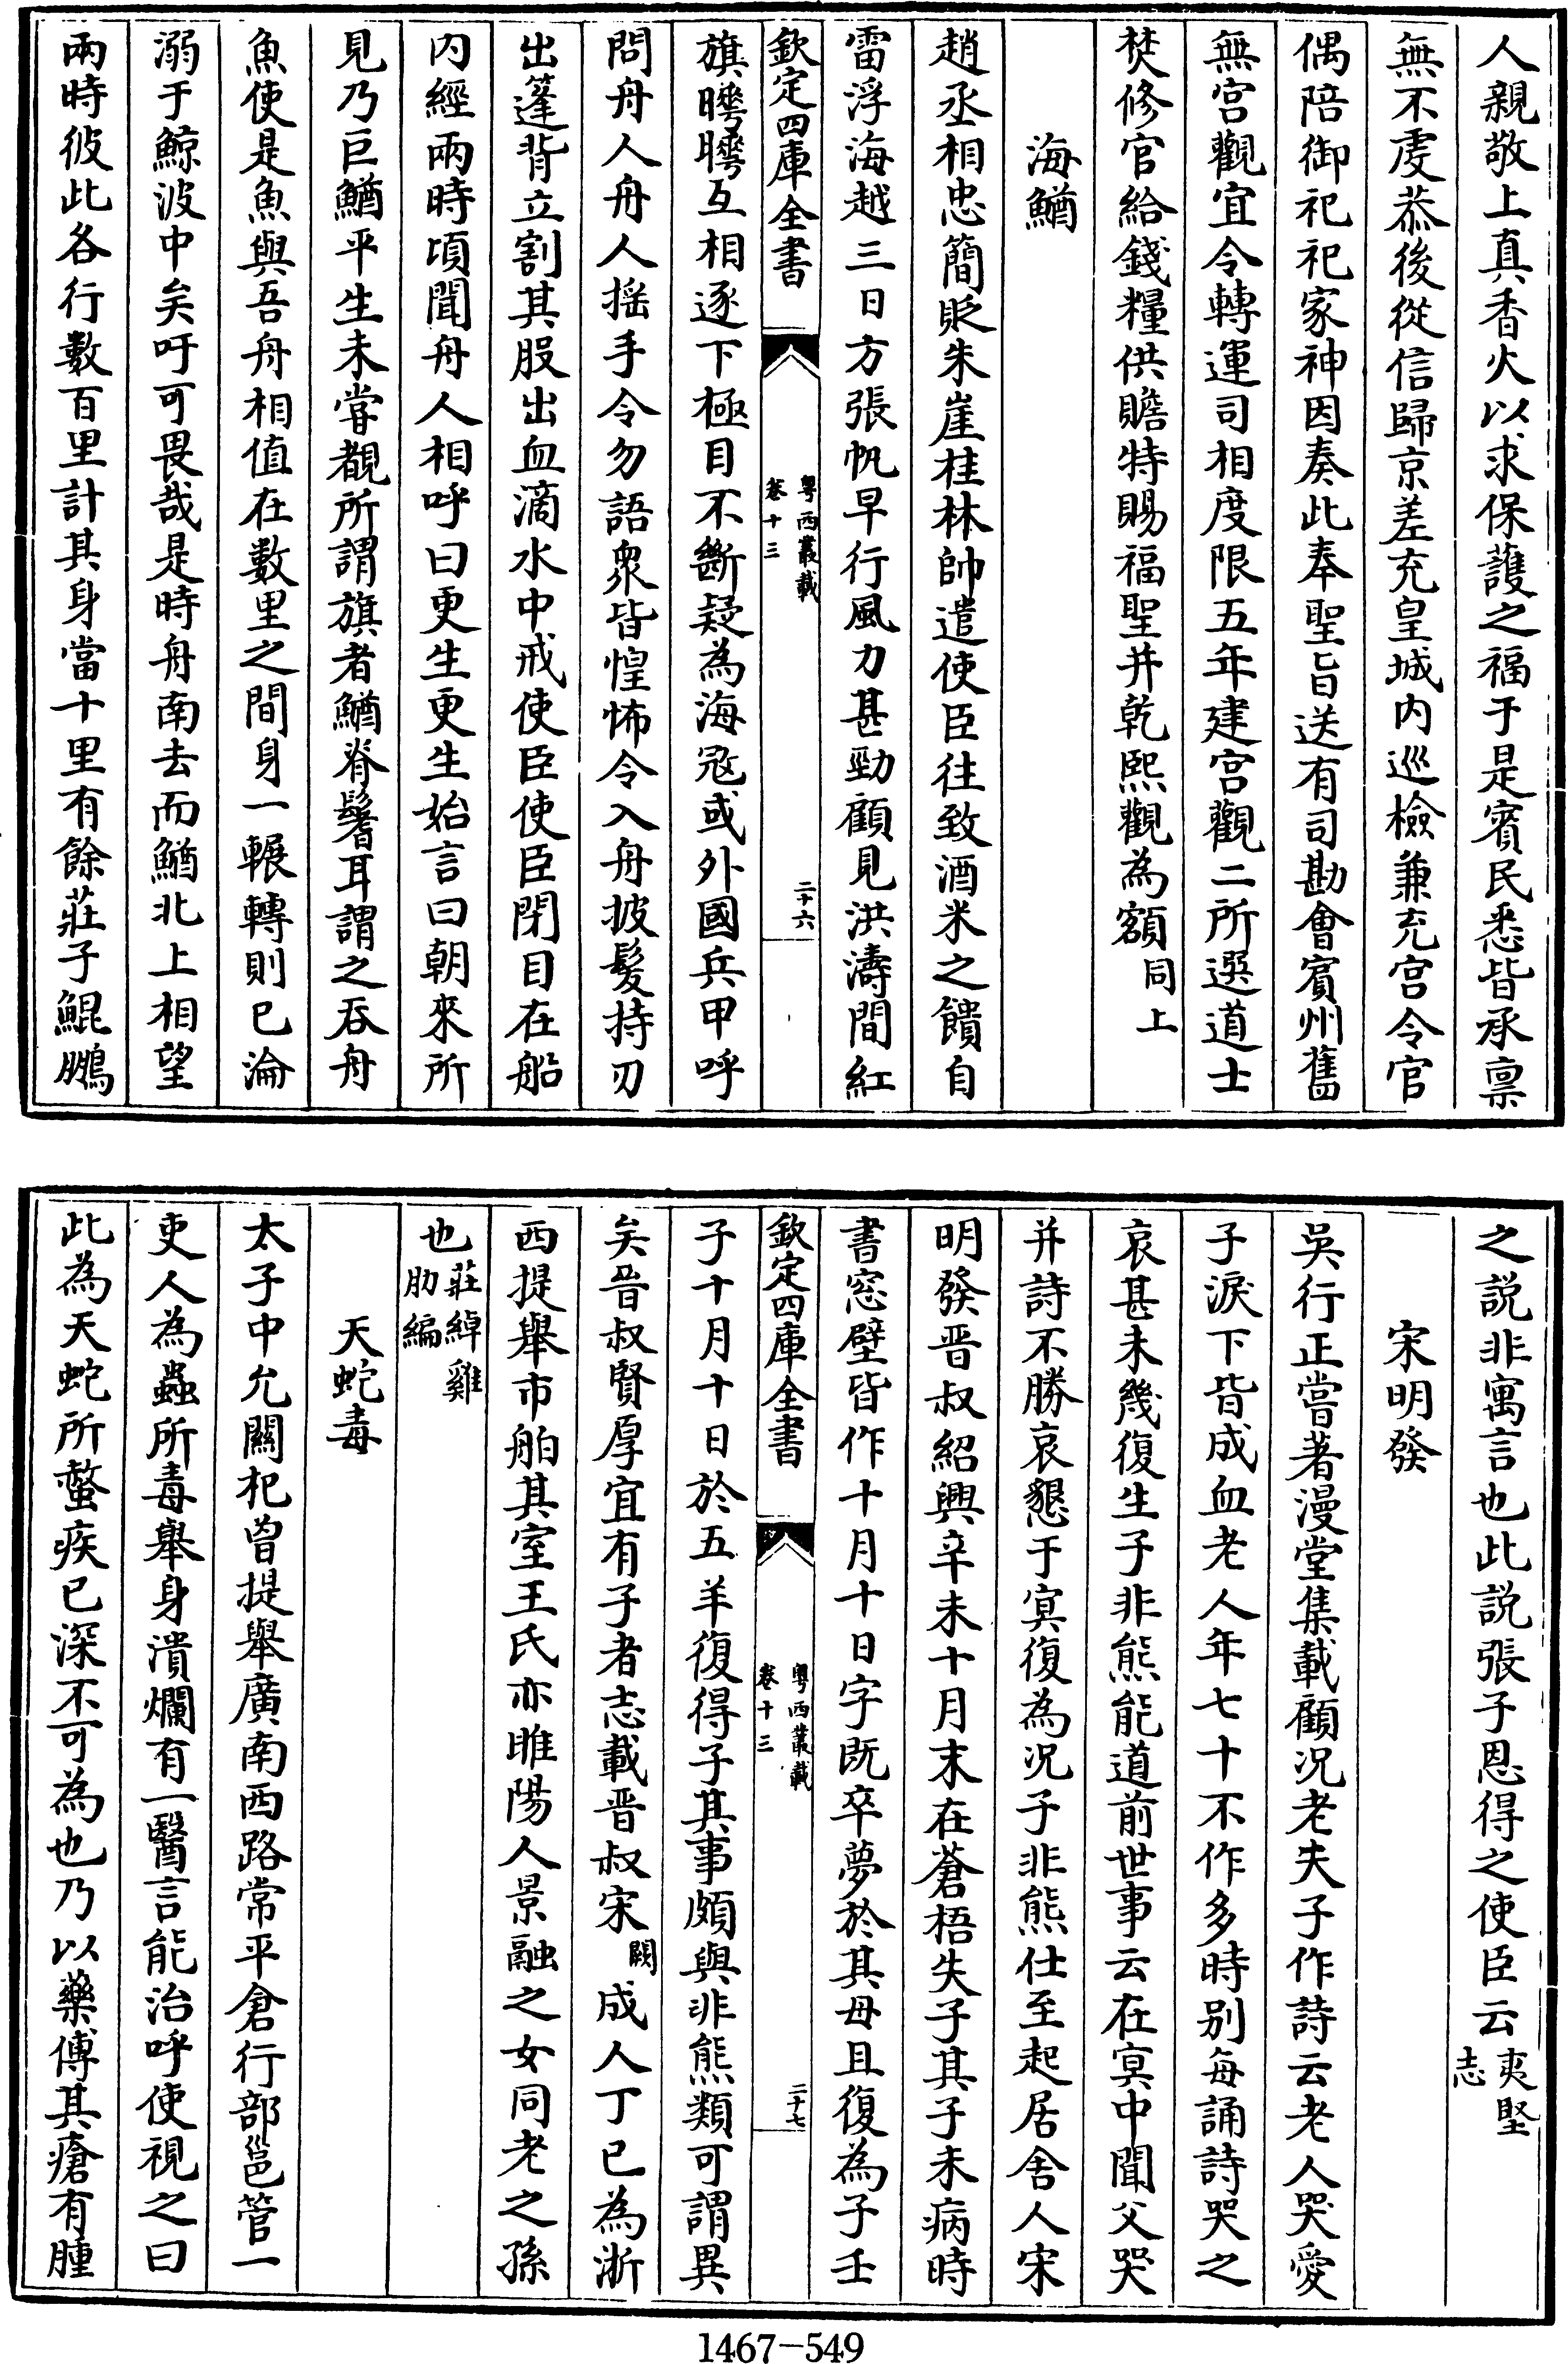 人親敬上真香火以求保䕶之福于是賓民悉皆承禀
無不虔恭後從信歸京差充皇城内巡檢兼充宫令官
偶陪御祀祀家神因奏此奉聖旨送有司勘會賓州舊
無宫觀宜令轉運司相度限五年建宫觀二所選道士
焚修官給錢糧供贍特賜福聖并乾熙觀為額同上
海鰌
趙丞相忠簡貶朱崖桂林帥遣使臣往致酒米之饋自
雷浮海越三日方張帆早行風力甚勁顧見洪濤間紅
欽定四庫全書
粤西叢載
卷十三
二十六
旗㬹㬹互相逐下極目不斷疑為海冦或外國兵甲呼
問舟人舟人揺手令勿語衆皆惶怖令入舟披髪持刃
出篷背立割其股出血滴水中戒使臣使臣閉目在船
内經兩時頃聞舟人相呼曰更生更生始言曰朝來所
見乃巨鰌平生未甞覩所謂旗者鰌脊鬐耳謂之吞舟
魚使是魚與吾舟相值在數里之間身一輾轉則已淪
溺于鯨波中矣吁可畏哉是時舟南去而鰌北上相望
兩時彼此各行數百里計其身當十里有餘莊子鯤鵬
之説非寓言也此説張子恩得之使臣云夷堅
志
宋明發
吳行正嘗著漫堂集載顧况老失子作詩云老人哭愛
子淚下皆成血老人年七十不作多時别每誦詩哭之
哀甚未幾復生子非熊能道前世事云在㝠中聞父哭
并詩不勝哀懇于㝠復為况子非熊仕至起居舍人宋
明發晋叔紹興辛未十月末在蒼梧失子其子未病時
書窓壁皆作十月十日字既卒夢於其母且復為子壬
欽定四庫全書
粤西叢載
卷十三
二十七
子十月十日於五羊復得子其事頗與非熊類可謂異
矣晋叔賢厚宜有子者志載晋叔宋闕成人丁巳為浙
西提舉市舶其室王氏亦睢陽人景融之女同老之孫
也莊綽雞
肋編
天蛇毒
太子中允關杞曽提舉廣南西路常平倉行部邕管一
吏人為蟲所毒舉身潰爛有一醫言能治呼使視之曰
此為天蛇所螫疾已深不可為也乃以藥傅其瘡有腫
1467-549